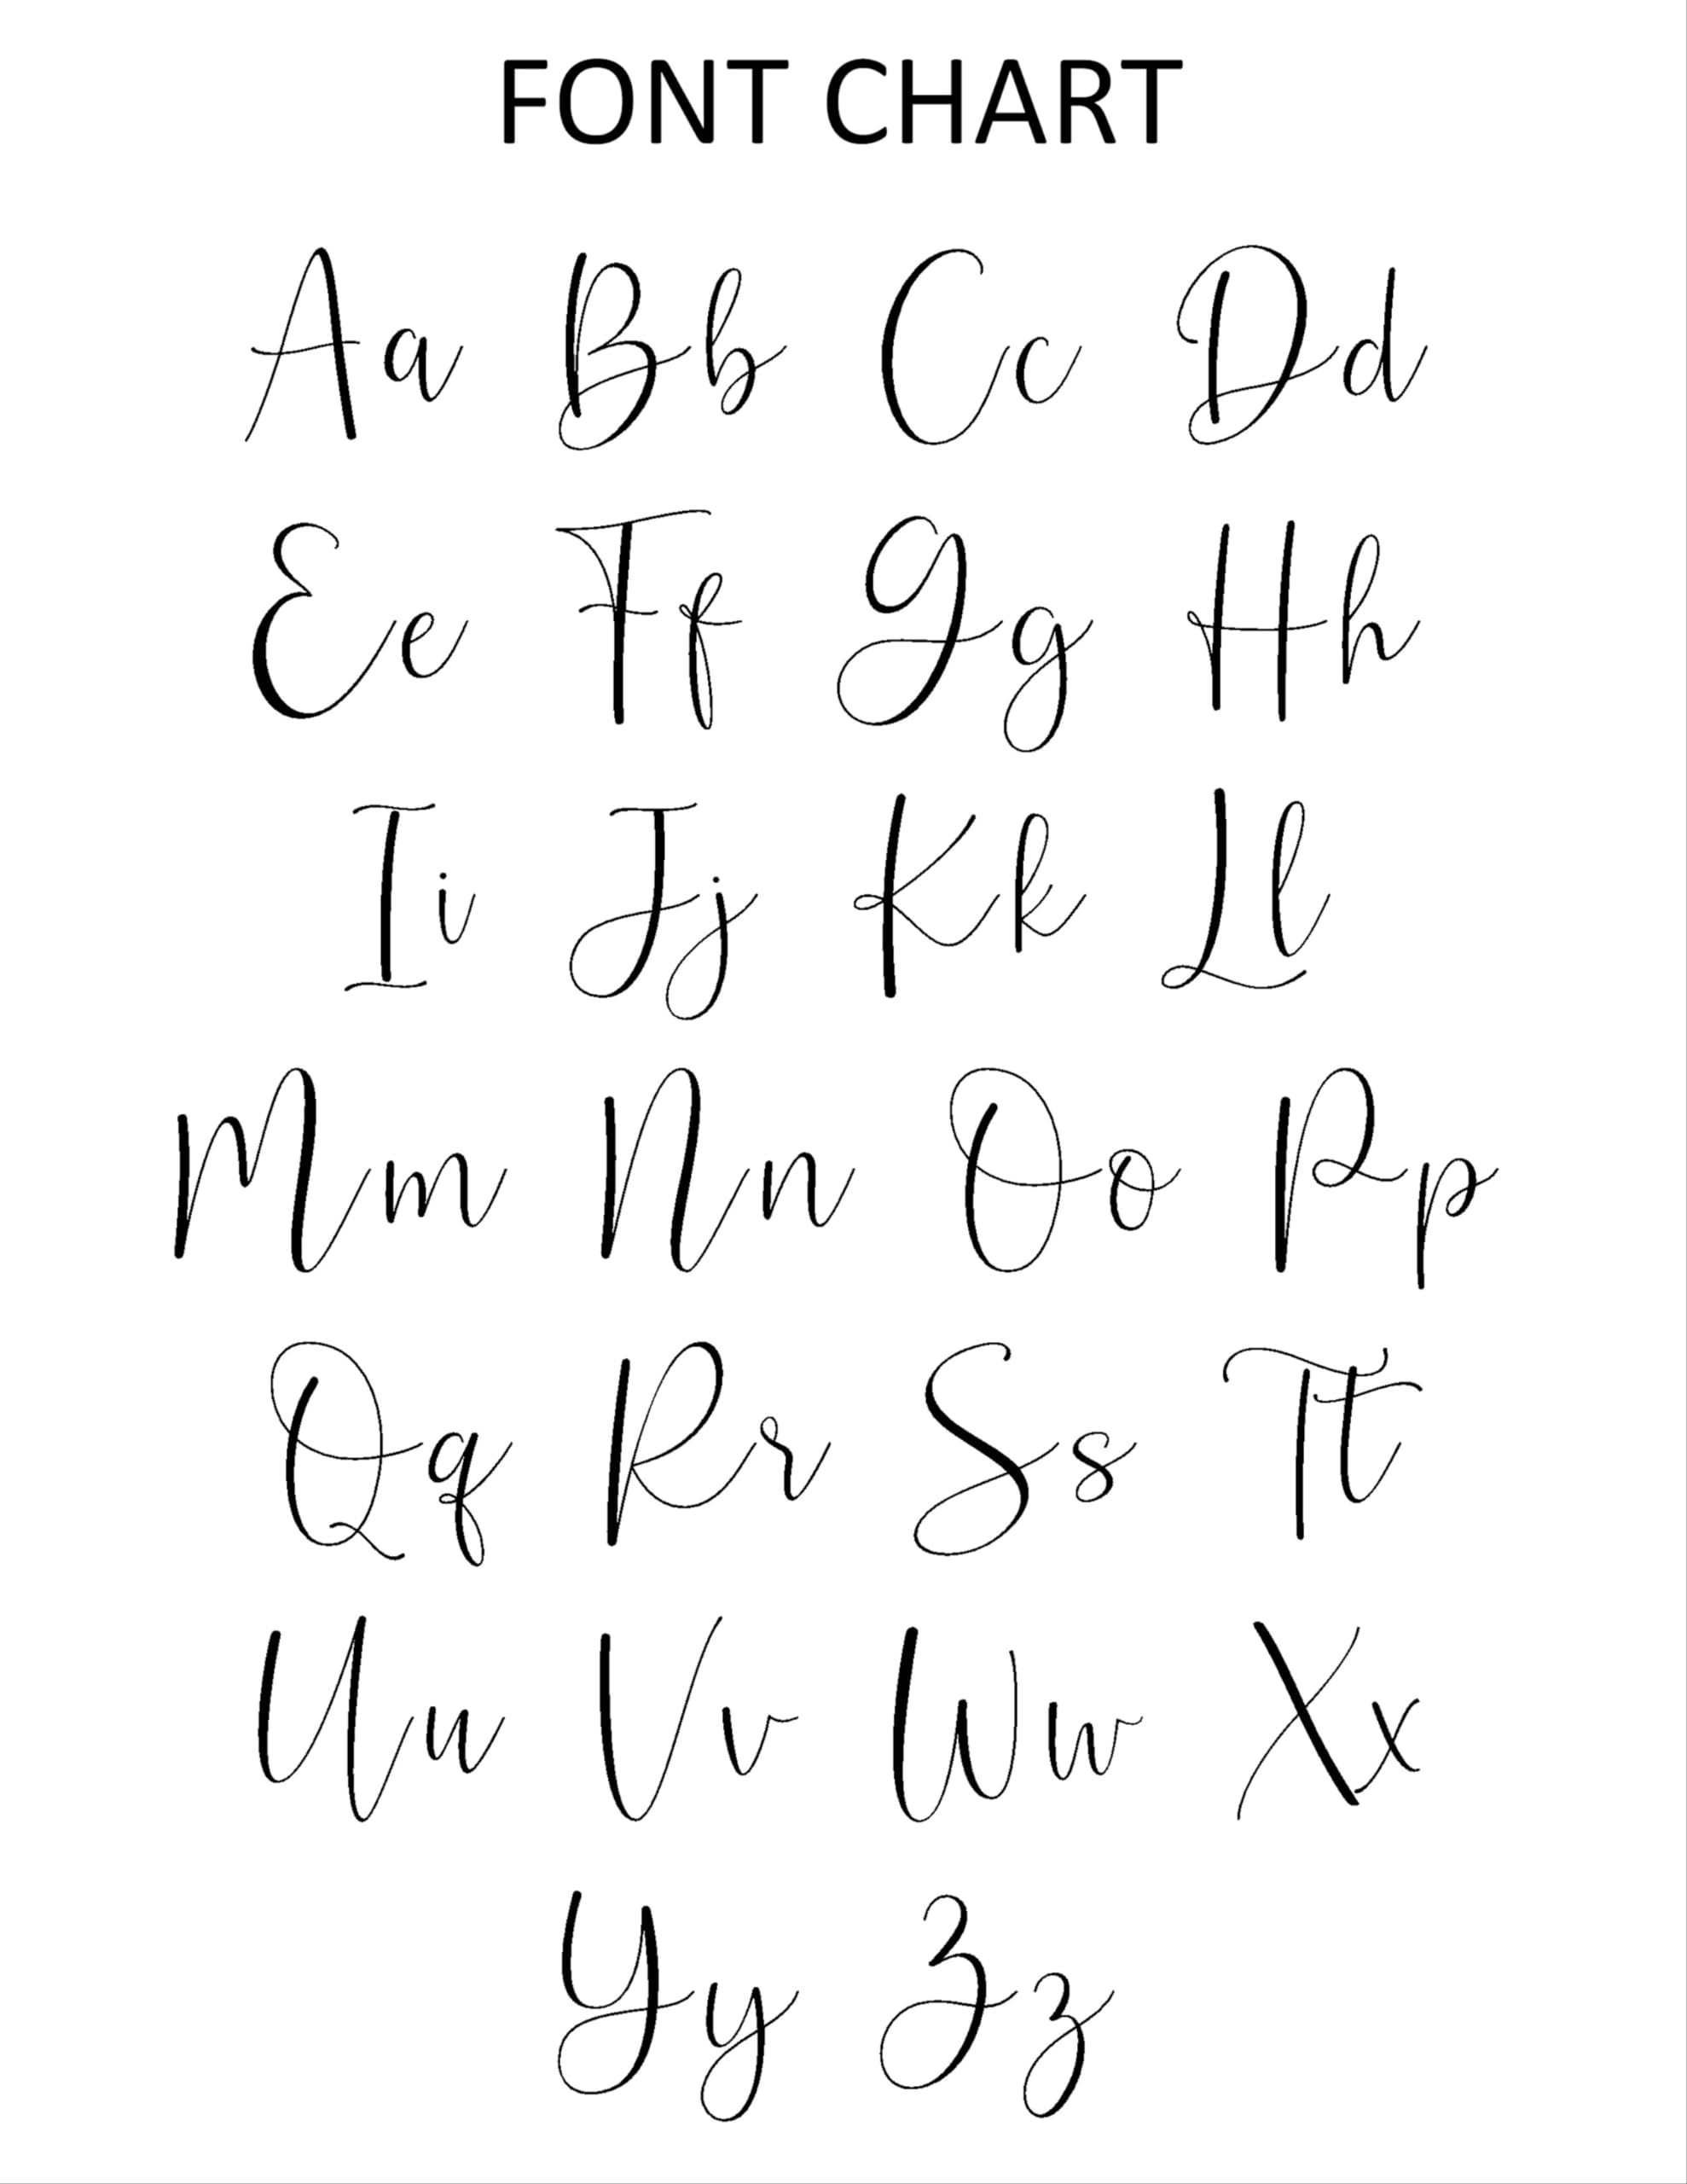 FONT CHART
Aa Bb Cc Dd
Ee Ff Gg Hh
Ii Jj Kk Ll
Mm Nn Oo Pp
Qq Rr Ss Tt
Uu Vv Ww Xx
Yy Zz